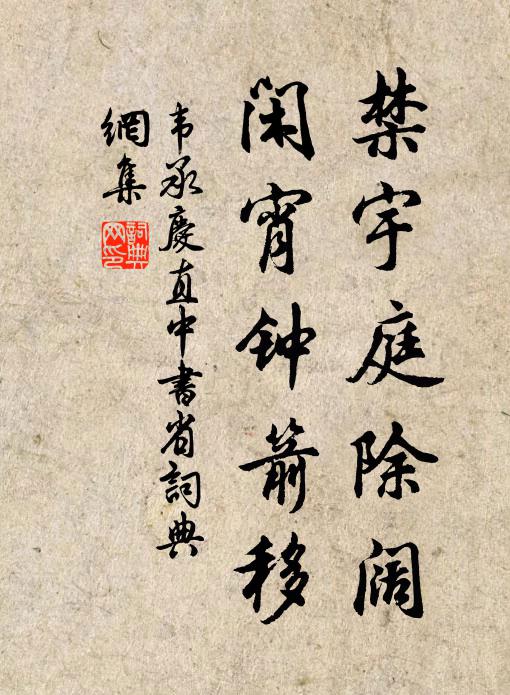 禁宇庭除阔
闲宵钟箭移
韦承慶直中書省詞典
網集
詞典网印